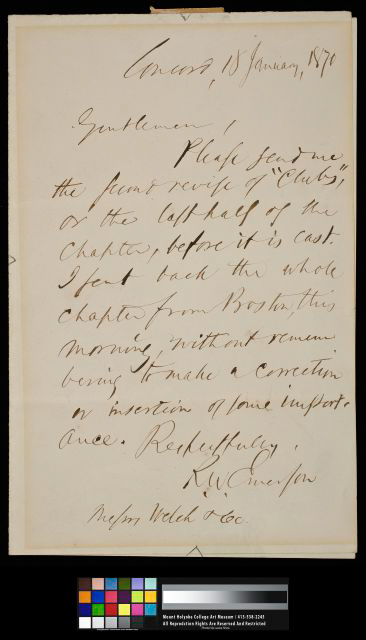 Concord, 18 January, 1870
Gentlemen,
Please send me
the second revise of "Clubs",
or the last half of the
chapter, before it is cast.
I sent back the whole
chapter from Boston, this
morning, without remem
bering to make a correction
or insertion of some import-
ance. Respectfully,
R. W. Emerson
Messrs Welch & Co.
Mount Holyoke College Art Museum | 413-538-2245
All Reproduction Rights Are Reserved And Restricted